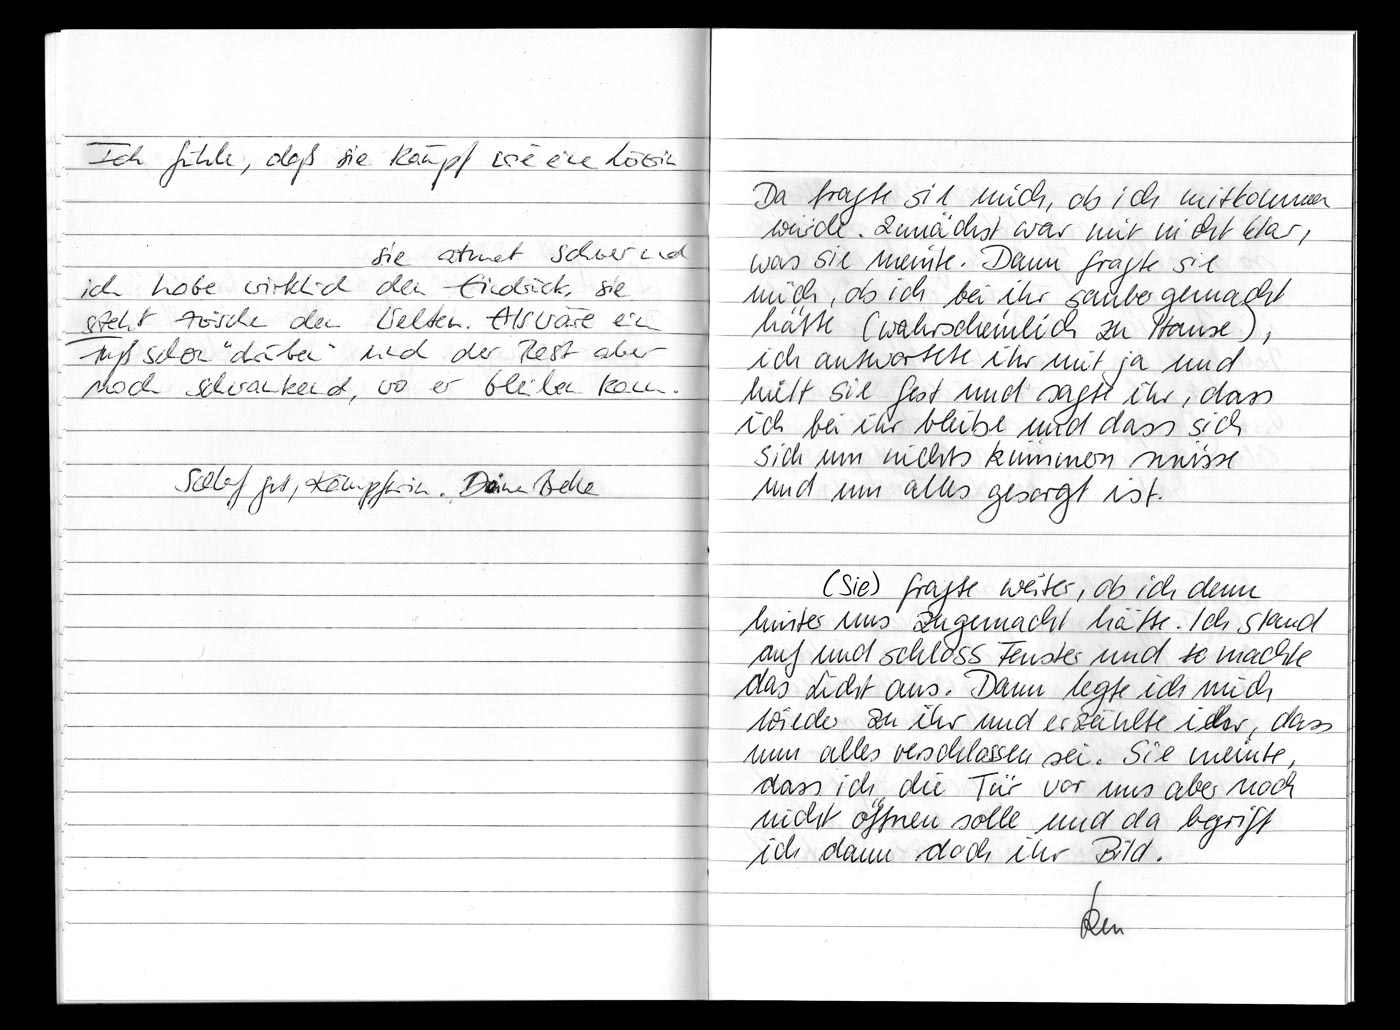 Ich fühle, daß sie kämpf wie eine Löwin
sie atmet schwer und
ich habe wirklich den Eindruck, sie
steht zwische den Welten. Als wäre ein
Fuß schon "drüben" und der Rest aber
noch schwankend, wo er bleiben kann.
Schlaf gut, Kämpferin. Deine
Da fragte sie mich, ob ich mitkommen
würde. Zunächst war mir nicht klar,
was sie meinte. Dann fragte sie
mich, ob ich bei ihr saubergemacht
hätte (wahrscheinlich zu Hause),
ich antwortete ihr mit ja und
hielt sie fest und sagte ihr, dass
ich bei ihr bleibe und dass sich
sich um nichts kümmern müsse
und um alles gesorgt ist.
(Sie) fragte weiter, ob ich denn
hinter uns zugemacht hätte. Ich stand
auf und schloss Fenster und machte
das Licht aus. Dann legte ich mich
wieder zu ihr und erzählte ihr, dass
nun alles verschlossen sei. Sie meinte,
dass ich die Tür vor uns aber noch
nicht öffnen solle und da begriff
ich dann doch ihr Bild.